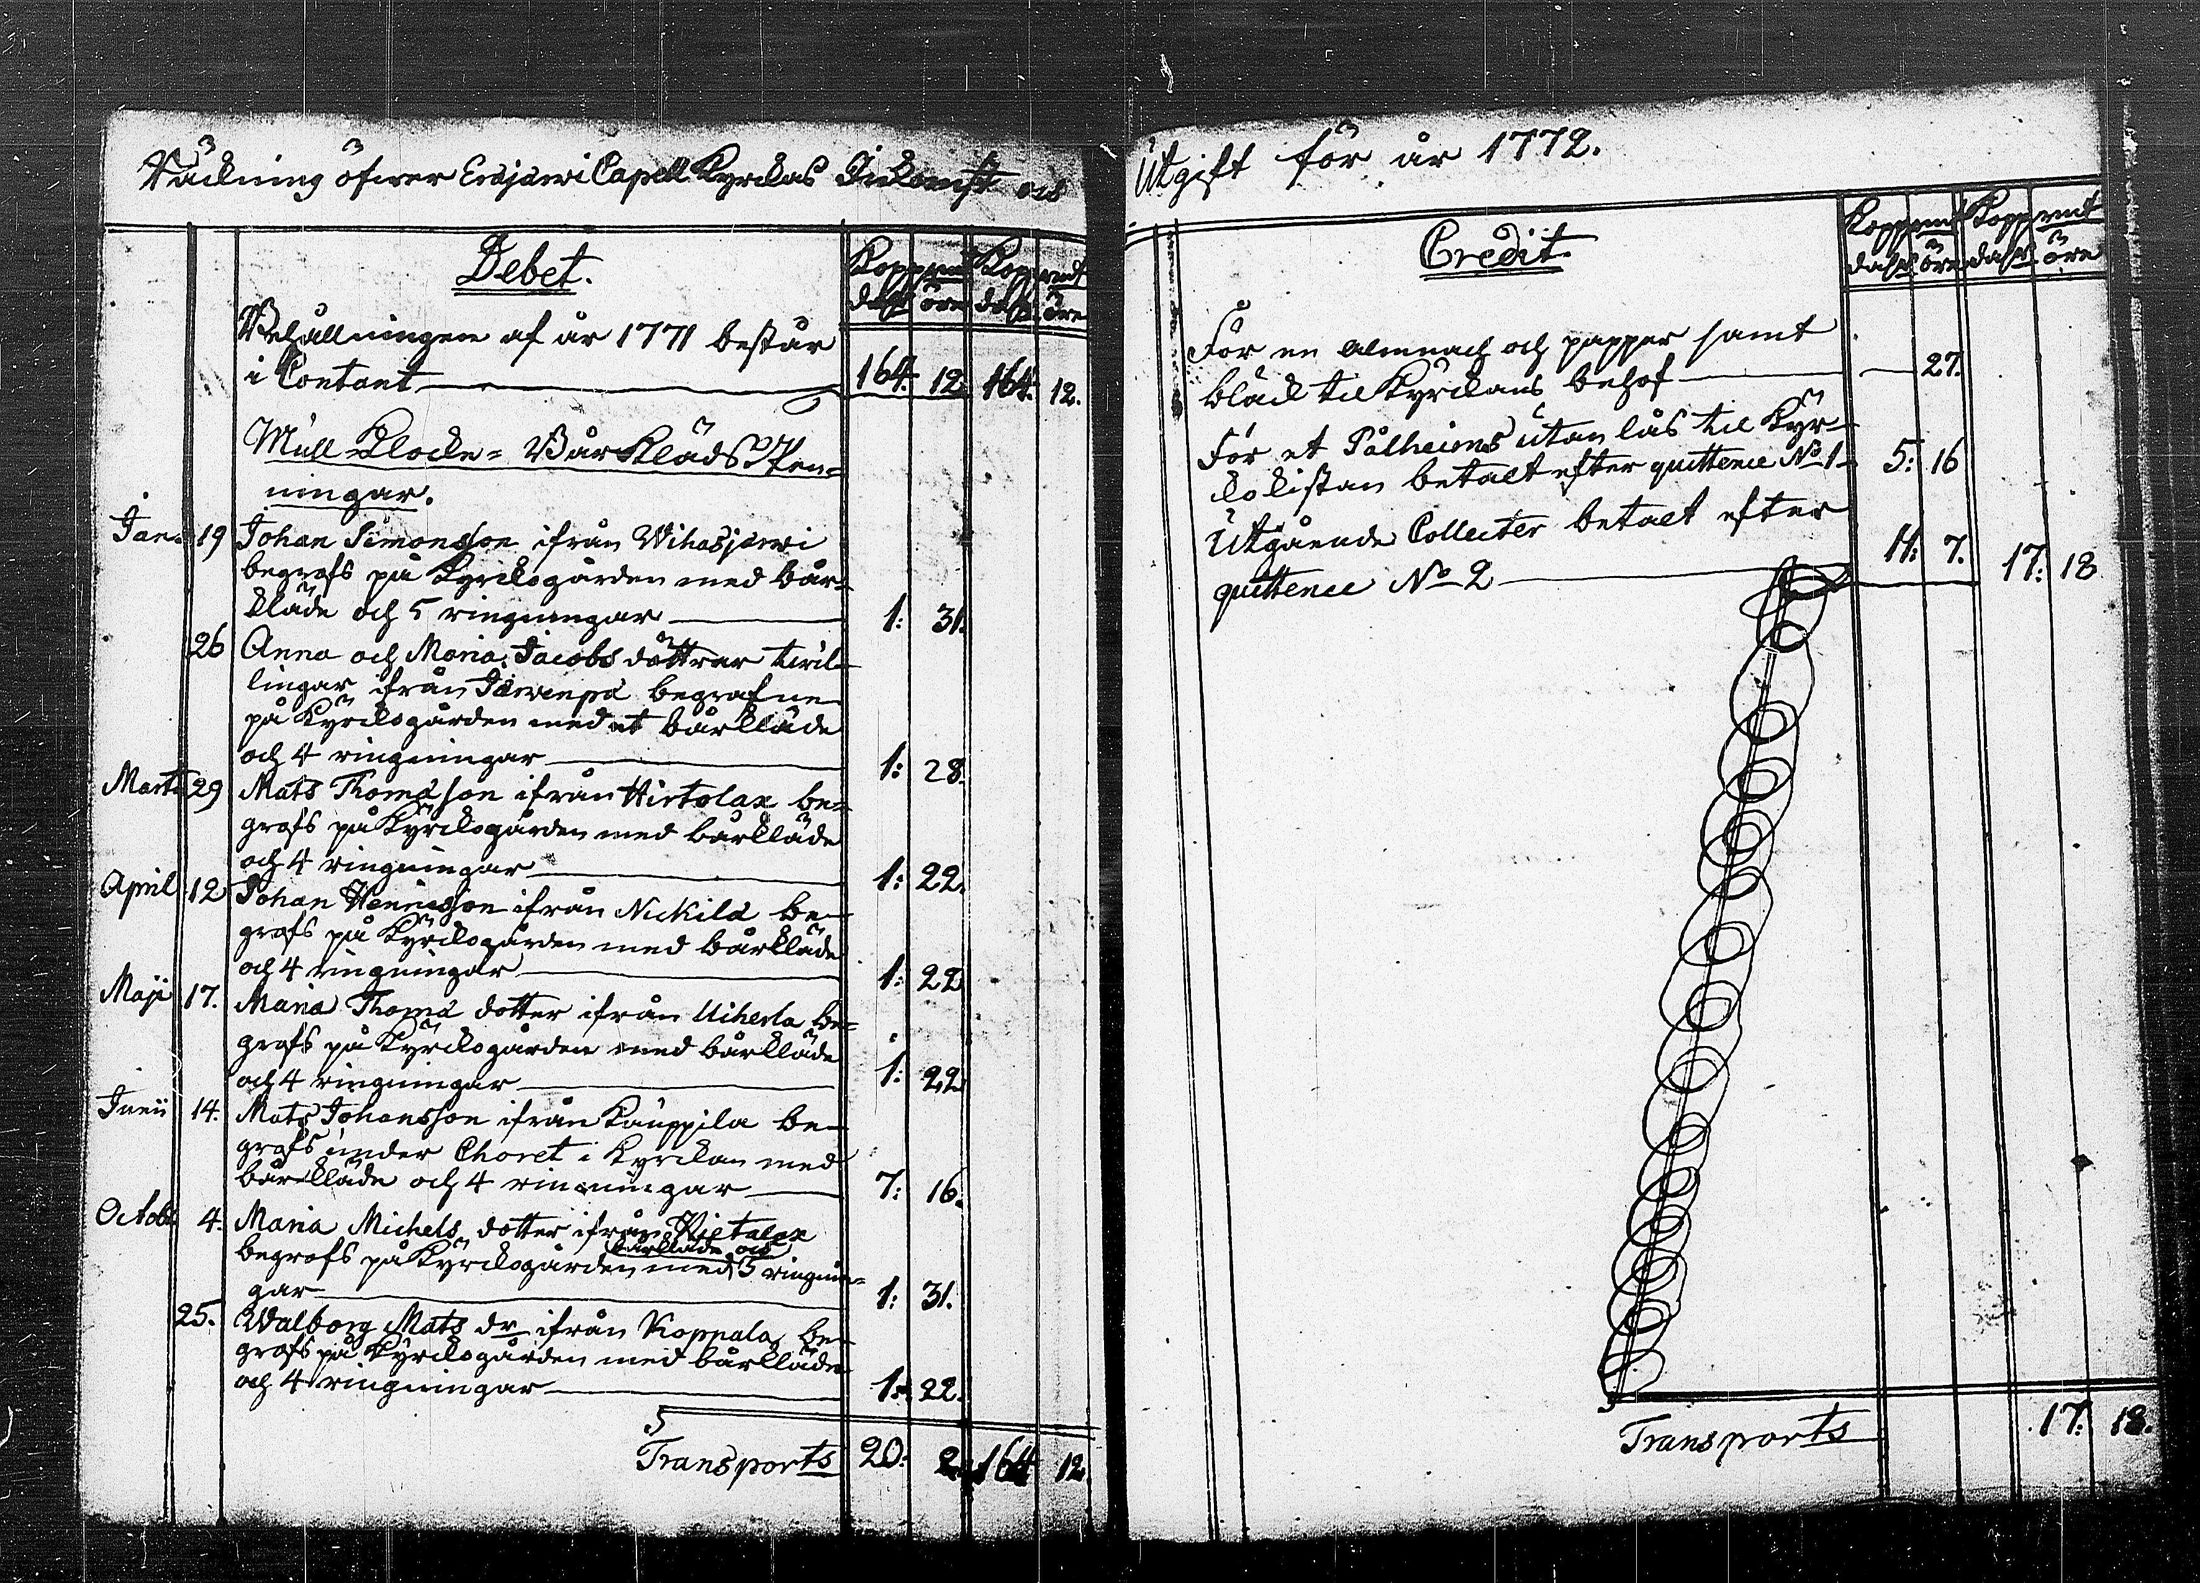 Räckning öfwer Eräjerwi Capell Kyrckas Inkomst och
Debet.
Kopp mt Kopp mt
dahlr öre dahlr öre
Behållningen af år 1771 består
i Contant 164: 12 164: 12.
Mull Klocke- Bårkläds Pen-
ningar.
Jan: 19 Johan Simonsson ifrån Wihasjerwi
begrofs på Kyrckogården med bår-
kläde och 5 ringningar 1: 31.
26 Anna och Maria Jacobs döttrar twil-
lingar ifrån Järwenpä begrofne
på Kyrckogården med et bårkläde
och 4 ringningar 1: 28.
Martii 29 Mats Thomasson ifrån Hirtolax be-
grofs på Kyrckogården med bårkläde
och 4 ringningar 1: 22.
April 12 Johan Henricsson ifrån Nickilä be-
grofs på Kyrckogården med bårkläde
och 4 ringningar 1: 22
Maji 17. Maria Thoma dotter ifrån Uiherla be-
grofs på Kyrckogården med bårkläde
och 4 ringningar 1: 22
Junii 14. Mats Johansson ifrån Kauppila be-
grofs under Choret i Kyrckan med
bårkläde och 4 ringningar 7: 16.
Octob: 4. Maria Michels dotter ifrån
bårkläde och
begrofs på Kyrckogården med 5 ringnin-
gar 1: 31.
25. Walborg Mats dr ifrån Koppala be-
grofs på Kyrckogården med bårkläde
och 4 ringningar 1: 22.
Transports 20: 2 164 12
Utgift för år 1772.
Credit.
Kopp mt Kopp mt
dahlr öre dahlr öre
För en almnach och papper samt
bläck til Kyrckans behof 27.
För et Pålheims utan lås til Kyr-
ckokistan betalt efter quittence No 1 5: 16
Utgående Collecter betalt efter
quittence No 2 11: 7. 17: 18
Transports 17: 18.